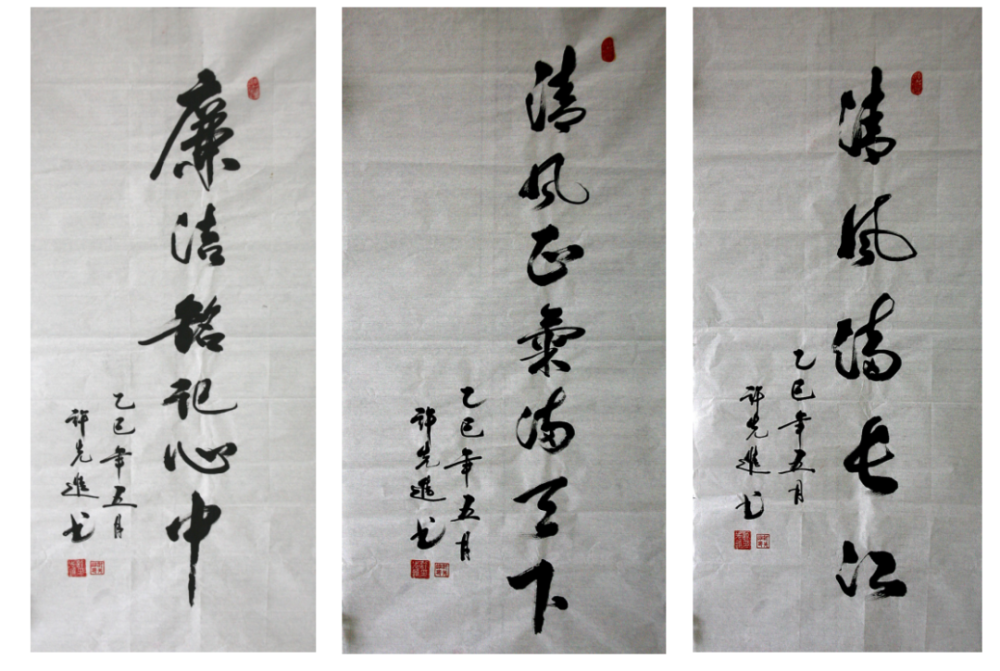 廉洁铭记心中
乙巳年五月
许先進书
清风正氣满天下
乙巳年五月
许先進书
清风满长江
乙巳年五月
许先進书